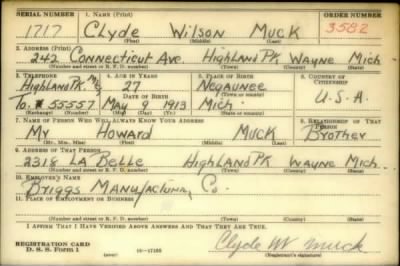 SERIAL NUMBER 1. NAME (Print) ORDER NUMBER
1717 Clyde Wilson Muck 3582
(First) (Middle) (Last)
2. ADDRESS (Print)
242 Connecticut Ave. Highland Pk Wayne Mich
(Number and street or R. F. D. number) (Town) (County) (State)
3. TELEPHONE 4. AGE IN YEARS 5. PLACE OF BIRTH 6. COUNTRY OF CITIZENSHIP
Highland Pk. Mg 27 Negaunee
DATE OF BIRTH
To. 55557 May 9 1913 Mich. U.S.A.
(Exchange) (Number) (Mo.) (Day) (Yr.) (State or country)
7. NAME OF PERSON WHO WILL ALWAYS KNOW YOUR ADDRESS 8. RELATIONSHIP OF THAT PERSON
Mr Howard Muck Brother
(Mr., Mrs., Miss) (First) (Middle) (Last)
9. ADDRESS OF THAT PERSON
2318 La Belle Highland Pk Wayne Mich.
(Number and street or R. F. D. number) (Town) (County) (State)
10. EMPLOYER'S NAME
Briggs Manufacturing Co.
11. PLACE OF EMPLOYMENT OR BUSINESS
(Number and street or R. F. D. number) (Town) (County) (State)
I AFFIRM THAT I HAVE VERIFIED ABOVE ANSWERS AND THAT THEY ARE TRUE.
REGISTRATION CARD
D. S. S. Form 1 (over) 16—17105 Clyde W Muck
(Registrant's signature)